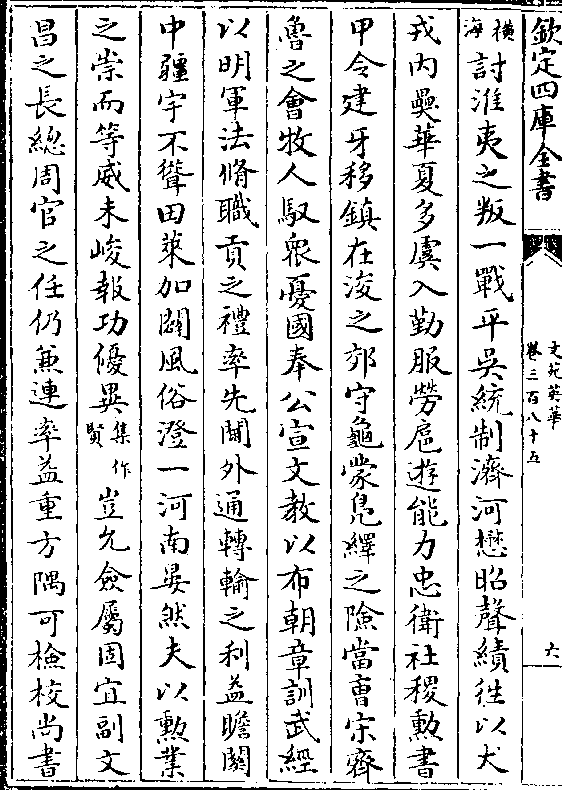 欽定四庫全書
文苑英華
卷三百八十五
六
橫海討淮夷之叛一戰平吳統制濟河懋昭聲績徃以犬
戎内㬥華夏多虞入勤服勞扈遊能力忠衛社稷勲書
甲令建牙移鎮在浚之郊守龜蒙鳬繹之險當曹宋齊
魯之會牧人馭衆憂國奉公宣文教以布朝章訓武經
以明軍法脩職貢之禮率先閫外通轉輸之利益贍關
中疆宇不聳田萊加闢風俗澄一河南晏然夫以勲業
之崇而等威未峻報功優異集作賢豈允僉屬固宜副文
昌之長總周官之任仍兼連率益重方隅可檢校尚書